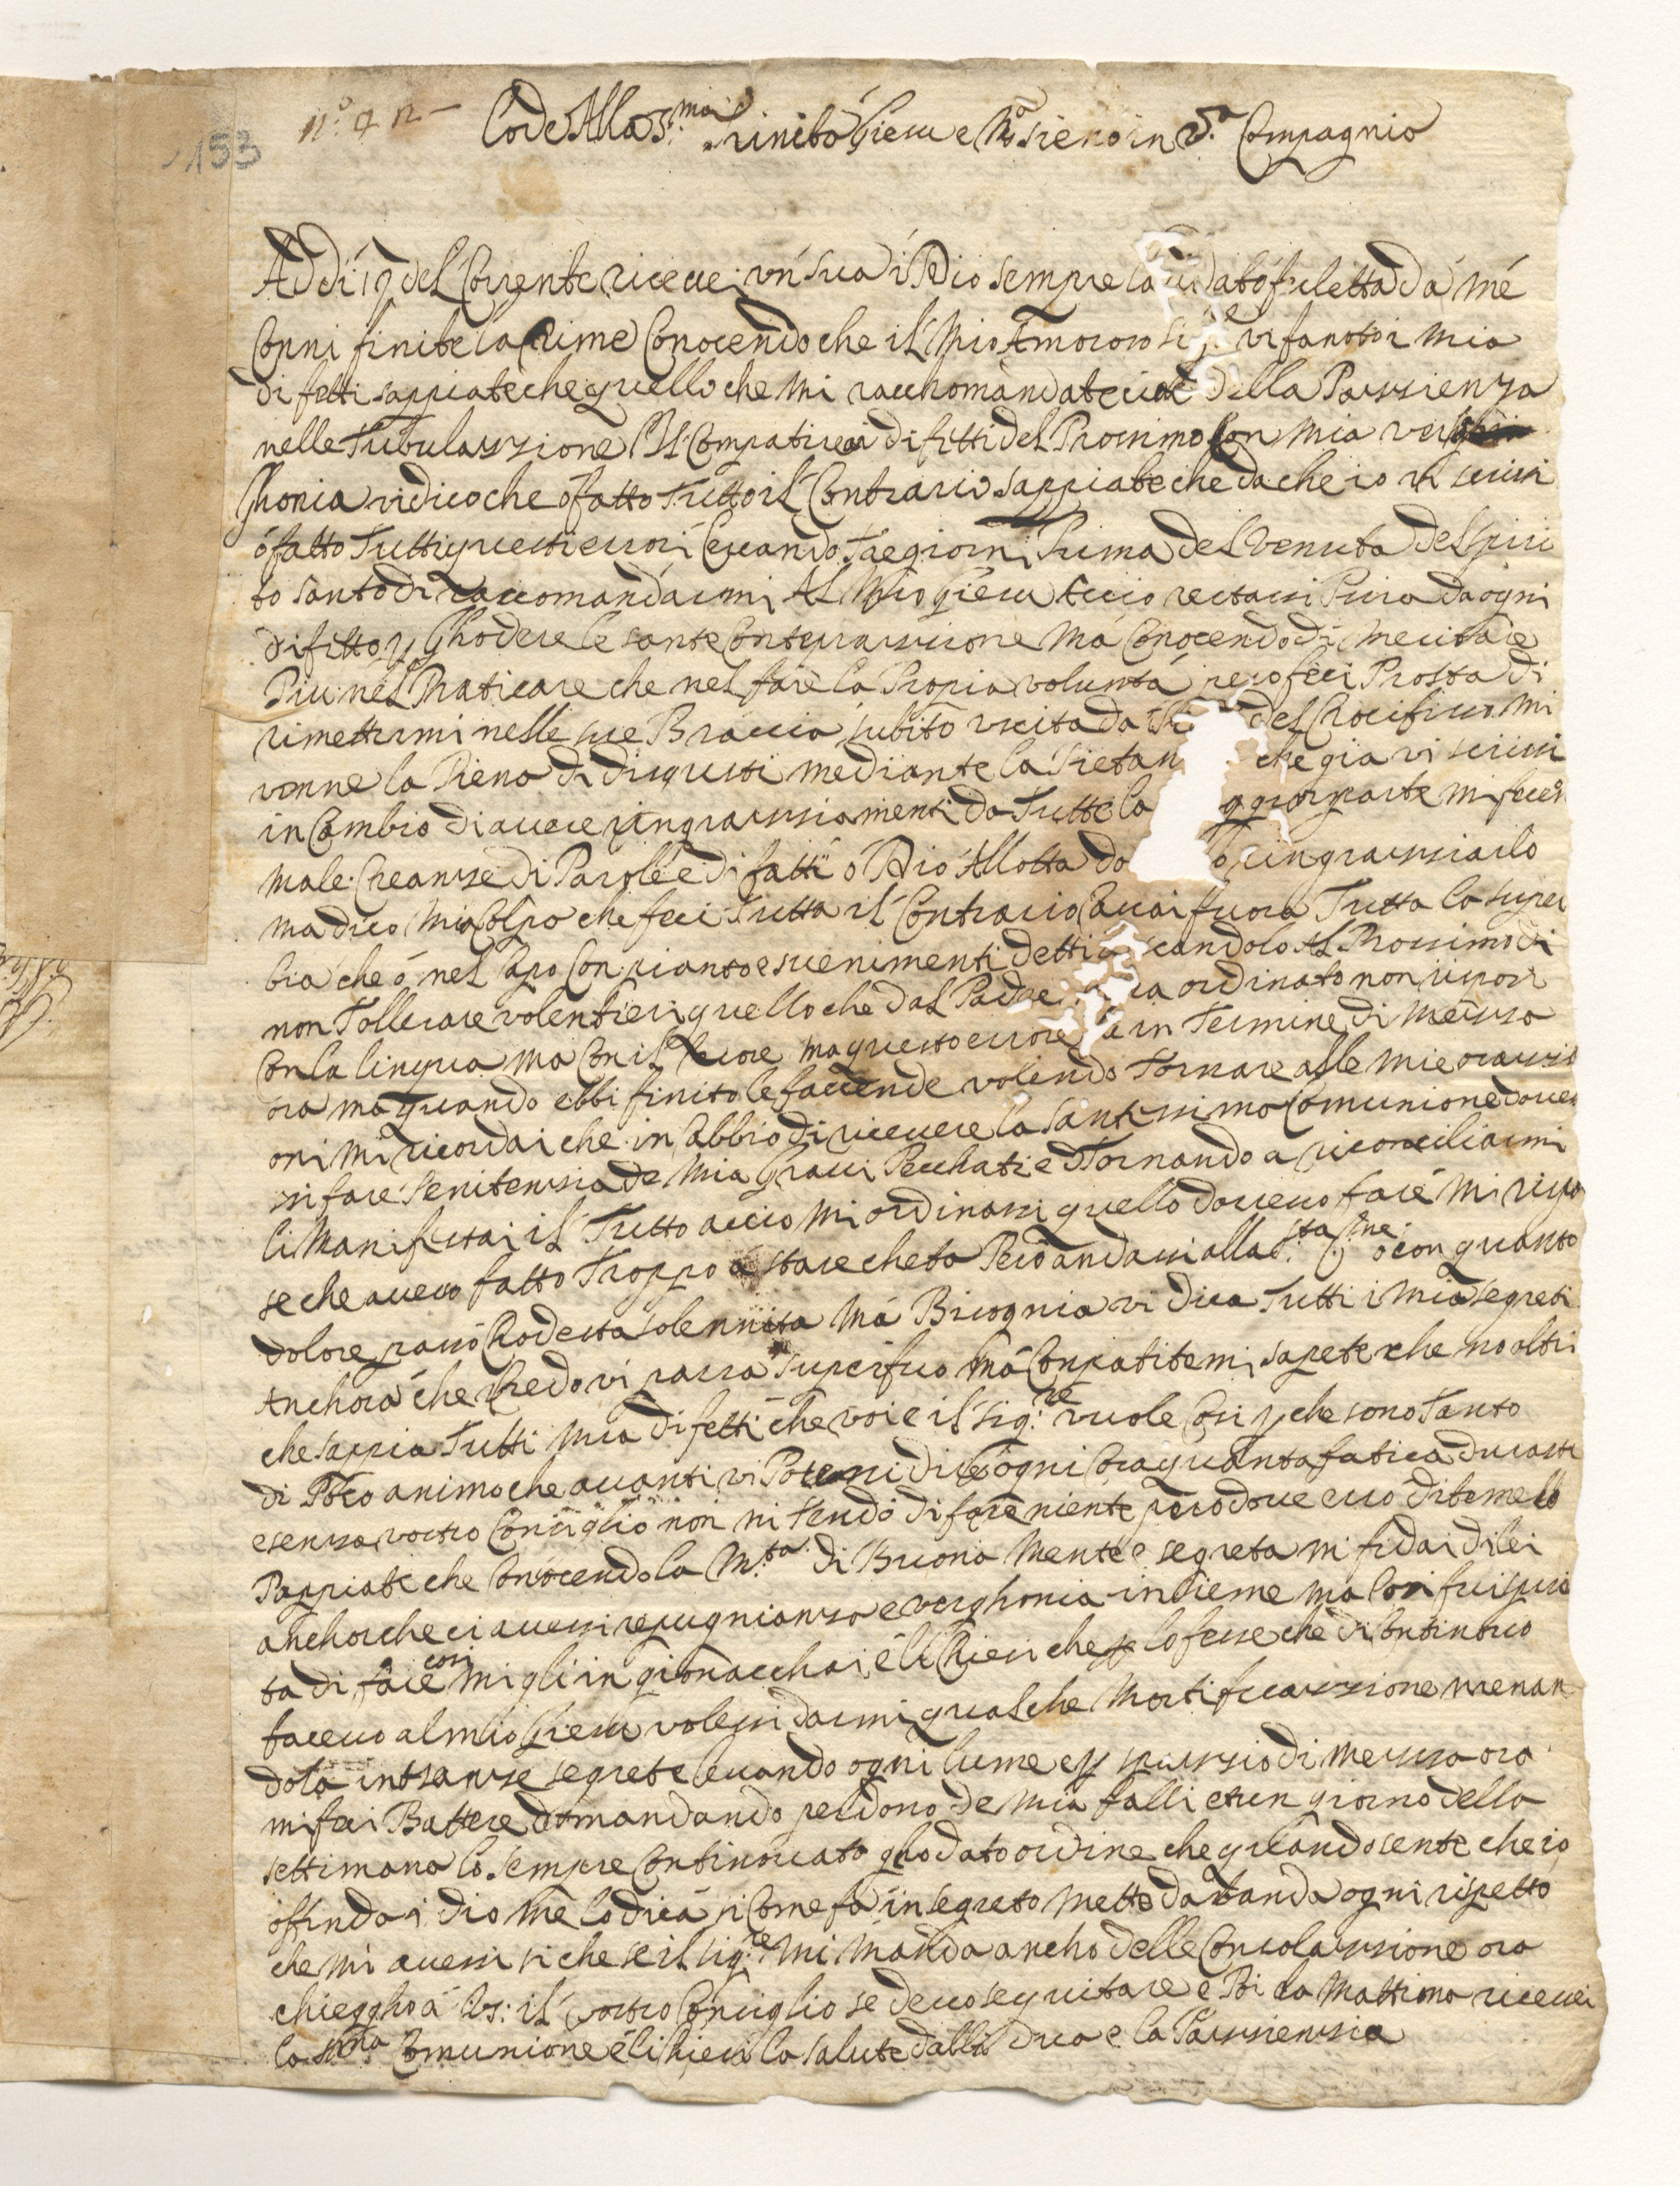 153
n.º 4 n
Lode Alla S.ma Trinità Giesu e M.a sieno in v.a Compagnia
Addi 19 del Corente riceuei un sua i Dio sempre laudato fu letta da mé
Con ni finite lacrime Conocendo che il Mio Amoroso vi fa noti i mia
difetti sappiate che quello che mi racchomandate cioe della Passienza
nelle Tribulazzione Il Compatire i difetti del Prossimo Con mia ver
ghonia vi dico che ó fatto Tutto il Contrario sappiate che da che io vi scrissi
ó fatto Tutti questi errori Cercando Tre giorni Prima del venuta del spiri
to santo di raccomandarmi Al Mio Giesu Accio restassi Pura da ogni
difetto p Ghodere le sante Contemprazzione má Conocendo di meritare
Piu nel Praticare che nel fare la Propia voluntá pero feci Prosta di
rimettermi nelle sue Braccia subito uscita da del Crocifisso mi
venne la Piena di disgusti mediante la Pietan che gia vi scrissi
in Cambio di auere ringrazziamenti da Tutte la ggior parte mi fecero
male Creanze di Parole e di fatti ó Dio Allotta do o ringrazziarlo
ma dico Mia Colpa che feci Tutto il Contrario Cauai fuora Tutta la super
bia che ó nel Capo Con pianto e suenimenti detti scandolo Al Prossimo di
non Tollerare volentieri quello che dal Padre ra ordinato non risposi
Con la lingua ma Con il Cuore ma questo errore fa in Termine di mezza
ora ma quando ebbi finito le faccende volendo Tornare alle mie orazzi
oni mi ricordai che in Cabbio di riceuere la santissima Comunione doueu
si fare Penitenzia de mia Graui Pecchati e Tornando a riconciliarmi
li Manifestai il Tutto accio mi ordinassi quello doueuo fare mi rispo
se che aueuo fatto Troppo á stare cheta Peró andassi alla S.ta C.ne o con quanto
dolore passó Codesta solennita Má Bisognia vi dica Tutti i mia segreti
Anchora che Credo vi parra superfluo má Conpatitemi sapete che no altri
che sappia Tutti mia difetti che voi e il sig.re vuole Cosi p che sono Tanto
di Poco animo che auanti vi Potessi dire ogni Cosa quanta fatica durassi
e senza vostro Consiglio non ni tendo di fare niente pero doue erro ditemelo
Sappiate che Conocendo la M.ta di Buona Mente e segreta mi fidai di lei
anchor che ci auessi repugnianza e verghonia insieme ma Cosi fui spira
ta di fare cosi mi gli in ginocchai é li Chiesi che lo fesse che di Continouo
faceuo al mio Giesu volessi darmi qualche Mortificazzione menan
dola in stanze segrete leuando ogni lume e p spazzio di mezza ora
mi feci Battere domandando perdono de mia falli e un giorno della
settimana ló sempre Continouato gl'ho dato ordine che quando sente che io
offendo i dio me lo dica si Come fa in segreto metto da banda ogni rispetto
che mi auessi si che se il sig.re mi manda ancho delle Consolazzione ora
chiegho á Vs: il vostro Consiglio se deuo seguitare e Poi la Mattina riceuei
la S.ma Comunione é li Chiesi la salute dalla Dua e la Passienzia